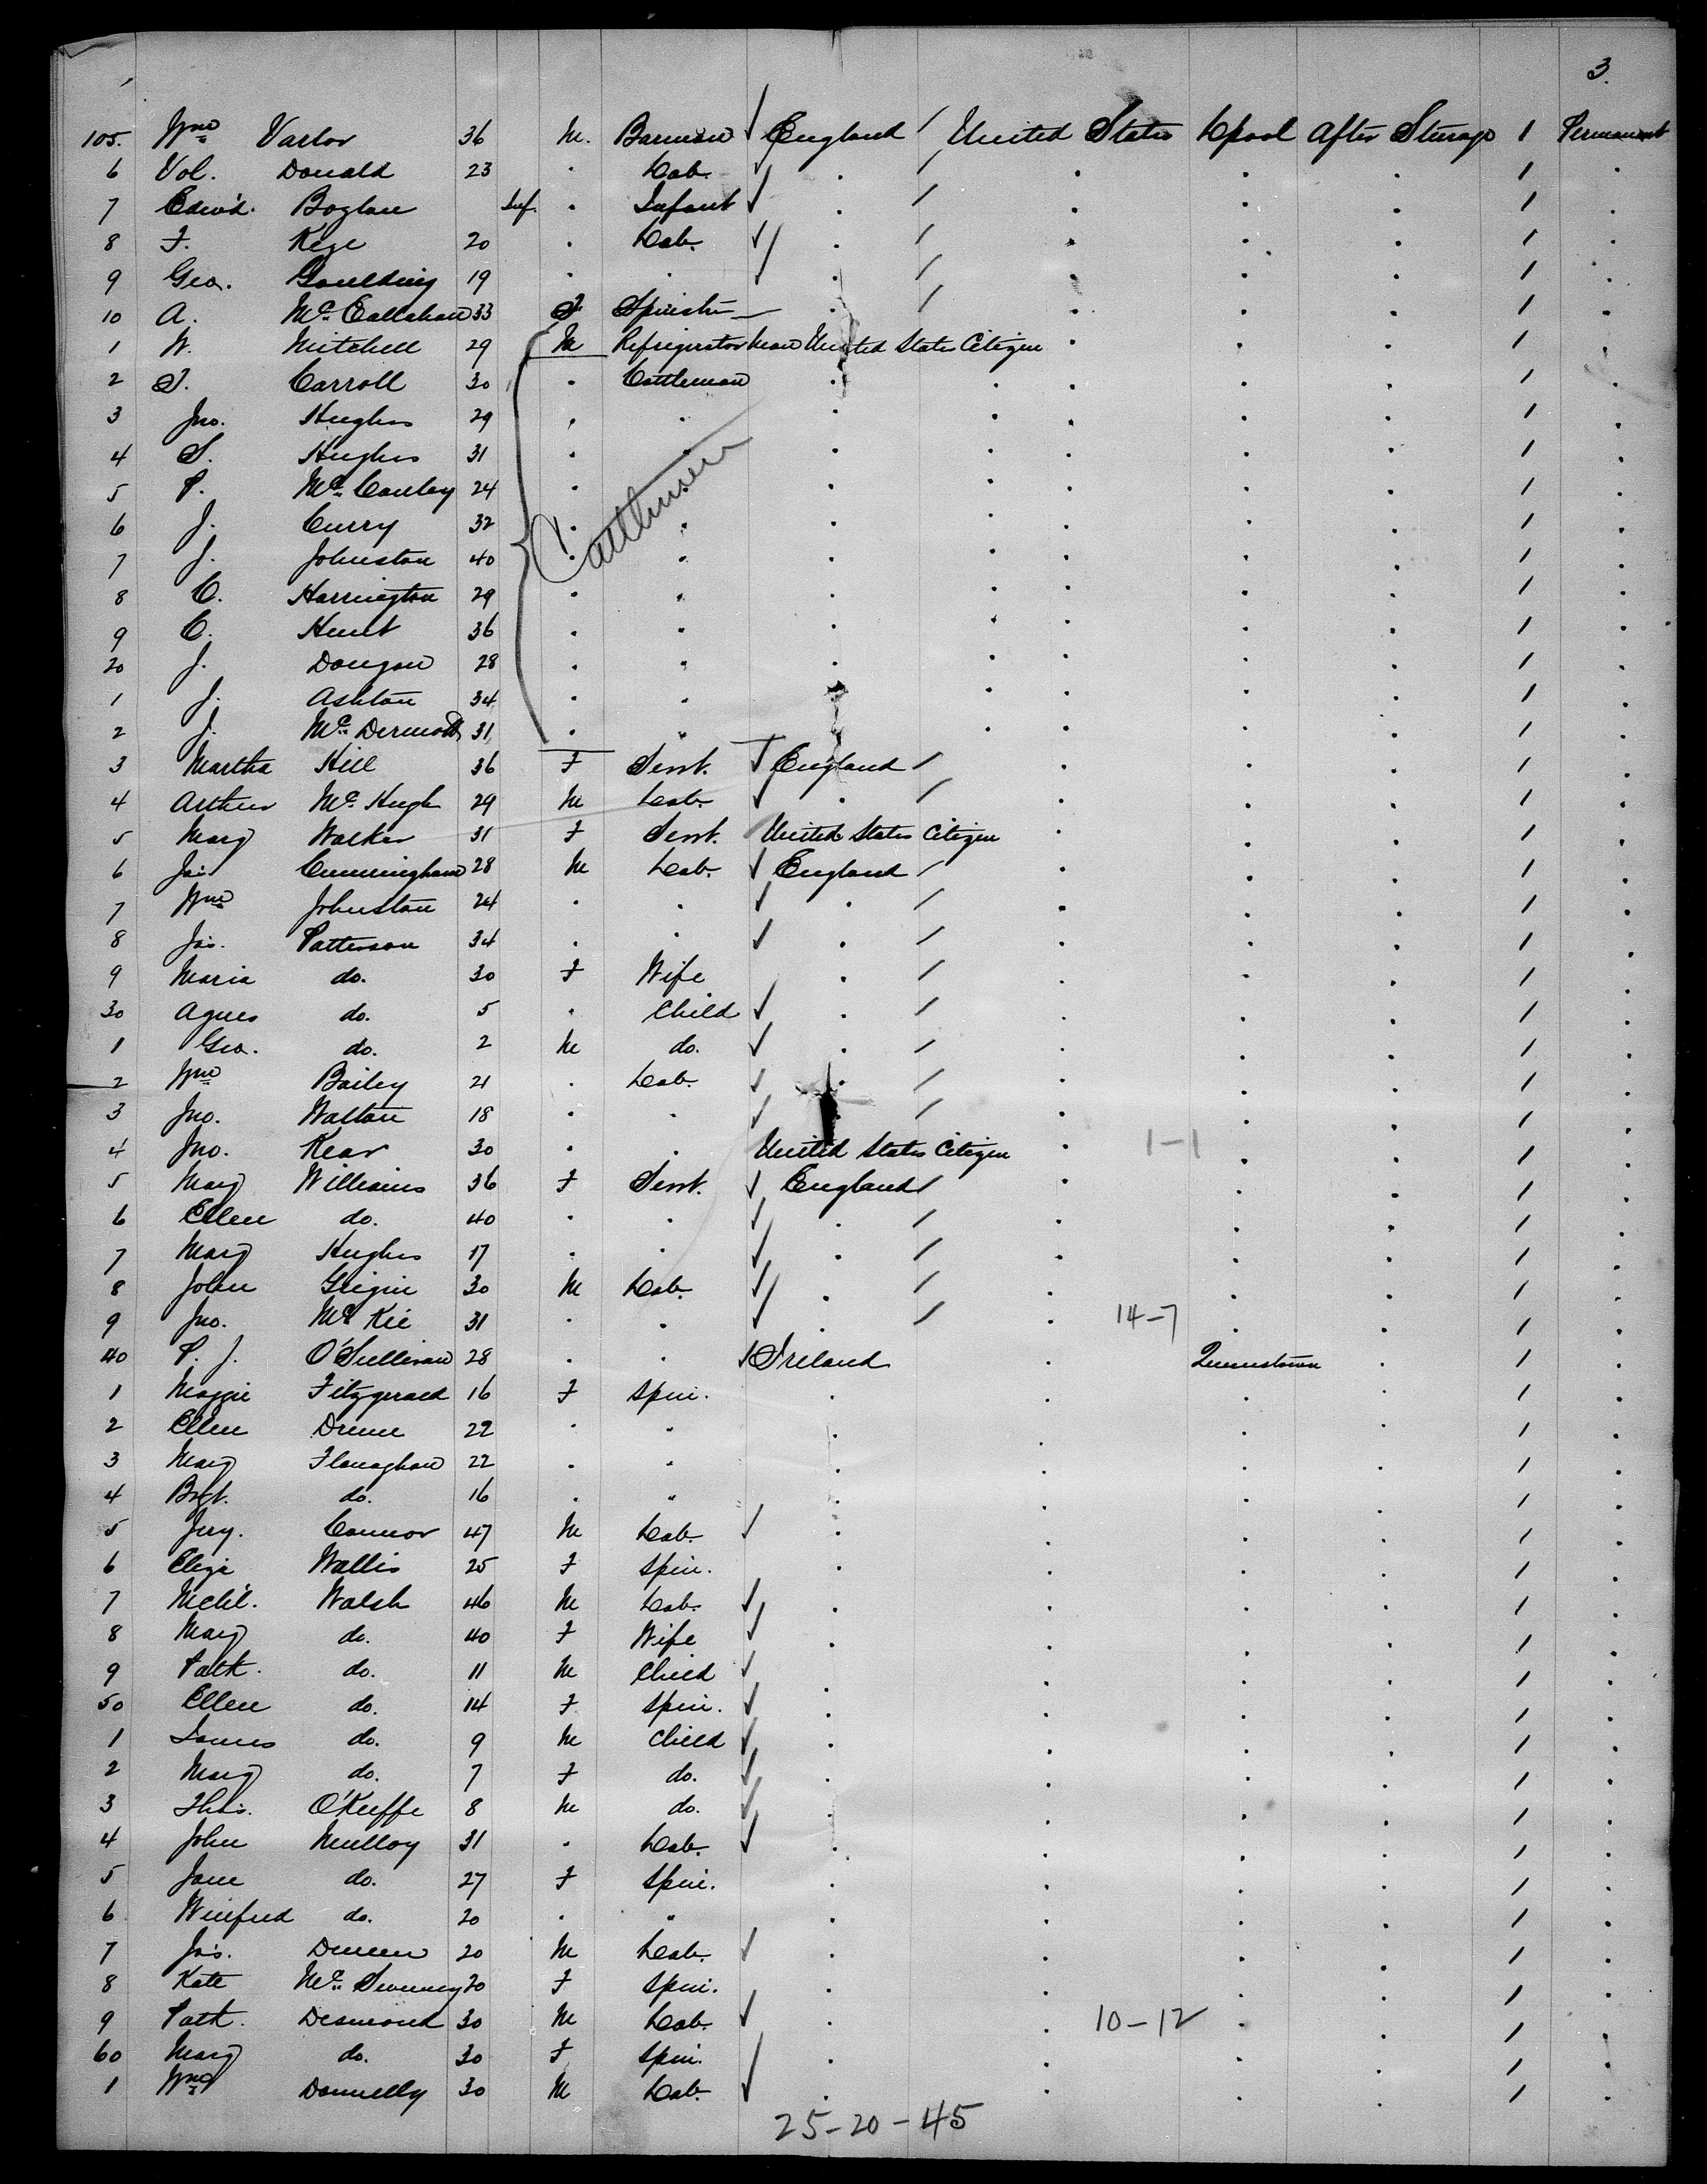 3.
105. Wm Varlor 36 M. Barman England United States Lpool After Steerage 1 Permanent
6 Vol. Donald 23 . Lab. . . . . 1 .
7 Edwd. Boglan Inf. . Infant . . . . 1 .
8 F. Kege 20 . Lab. . . . . 1 .
9 Geo. Goulding 19 . . . . . . 1 .
10 A. Mc Callahan 33 F Spinster . . . . 1 .
1 W. Mitchell 29 M Refrigerator Man United States Citizen . . . 1 .
2 T. Carroll 30 . Cattleman . . . . . 1 .
3 Jno. Hughes 29 . . . . . . . 1 .
4 S. Hughes 31 . . . . . . . 1 .
5 P. Mc Cauley 24 . . . . . . . 1 .
Cattlemen
6 J. Curry 32 . . . . . . . 1 .
7 J. Johnston 40 . . . . . . . 1 .
8 C. Harrington 29 . . . . . . . 1 .
9 C. Hunt 36 . . . . . . . 1 .
20 J. Dougan 28 . . . . . . . 1 .
1 J. Ashton 34 . . . . . . . 1 .
2 J. Mc Dermott 31 . . . . . . . 1 .
3 Martha Hill 36 F Servt. England . . . 1 .
4 Arthur Mc Hugh 29 M Lab. . . . . 1 .
5 Mary Walker 31 F Servt. United States Citizen . . . 1 .
6 Jas. Cunningham 28 M Lab. England . . . 1 .
7 Wm Johnston 24 . . . . . . 1 .
8 Jas. Patterson 34 . . . . . . 1 .
9 Maria do. 30 F Wife . . . . 1 .
30 Agnes do. 5 . Child . . . . 1 .
1 Geo. do. 2 M do. . . . . 1 .
2 Wm Bailey 21 . Lab. . . . . 1 .
3 Jno. Walton 18 . . . . . . 1 .
4 Jno. Kear 30 . . United States Citizen . 1-1 . . 1 .
5 Mary Williams 36 F Servt. England . . . 1 .
6 Ellen do. 40 . . . . . . 1 .
7 Mary Hughes 17 . . . . . . 1 .
8 John Grigin 30 M Lab. . . . . 1 .
9 Jno. Mc Kie 31 . . . . 14-7 . . 1 .
40 P. J. O'Sullivan 28 . . Ireland . Queenstown . 1 .
1 Maggie Fitzgerald 16 F Spin. . . . . 1 .
2 Ellen Dunne 22 . " . . . . 1 .
3 Mary Flanaghan 22 . " . . . . 1 .
4 Bgt. do. 16 . " . . . . 1 .
5 Jery. Connor 47 M Lab. . . . . 1 .
6 Eliza Wallis 25 F Spin. . . . . 1 .
7 Michl. Walsh 46 M Lab. . . . . 1 .
8 Mary do. 40 F Wife . . . . 1 .
9 Patk. do. 11 M Child . . . . 1 .
50 Ellen do. 14 F Spin. . . . . 1 .
1 James do. 9 M Child . . . . 1 .
2 Mary do. 7 F do. . . . . 1 .
3 Thos. O'Keeffe 8 M do. . . . . 1 .
4 John Mulloy 31 . Lab. . . . . 1 .
5 Jane do. 27 F Spin. . . . . 1 .
6 Winifred do. 20 . " . . . . 1 .
7 Jas. Dineen 20 M Lab. . . . . 1 .
8 Kate Mc Sweeney 20 F Spin. . . . . 1 .
9 Patk. Desmond 30 M Lab. . . 10-12 . . 1 .
60 Mary do. 30 F Spin. . . . . 1 .
1 Wm Donnelly 30 M Lab. . . . . 1 .
25-20-45